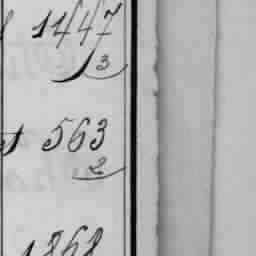 1447
3
563
2
1868